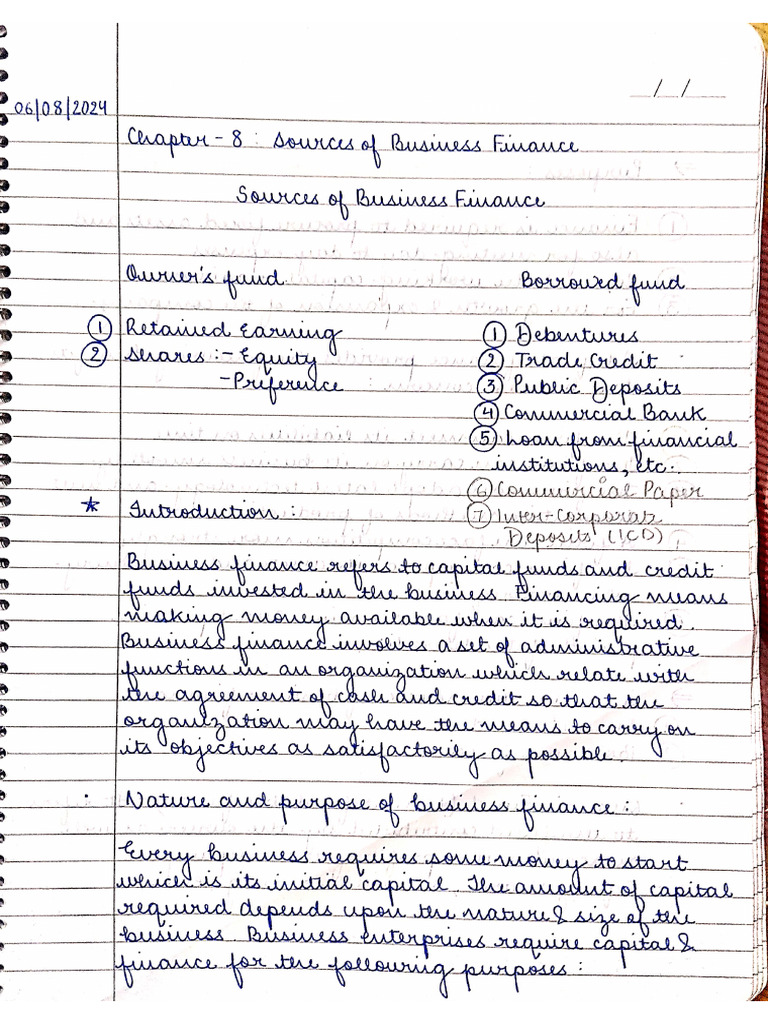 / /
06/08/2024
Chapter - 8 : Sources of Business Finance
Sources of Business Finance
Owner's fund Borrowed fund
① Retained Earning ① Debentures
② Shares :- Equity ② Trade Credit
- Preference ③ Public Deposits
④ Commercial Bank
⑤ Loan from financial
institutions, etc.
⑥ Commercial Paper
* Introduction : ⑦ Inter-Corporate
Deposits (ICD)
Business finance refers to capital funds and credit
funds invested in the business. Financing means
making money available when it is required.
Business finance involves a set of administrative
functions in an organization which relate with
the agreement of cash and credit so that the
organization may have the means to carry on
its objectives as satisfactorily as possible.
. Nature and purpose of business finance :
Every business requires some money to start
which is its initial capital. The amount of capital
required depends upon the nature & size of the
business. Business enterprises require capital &
finance for the following purposes :